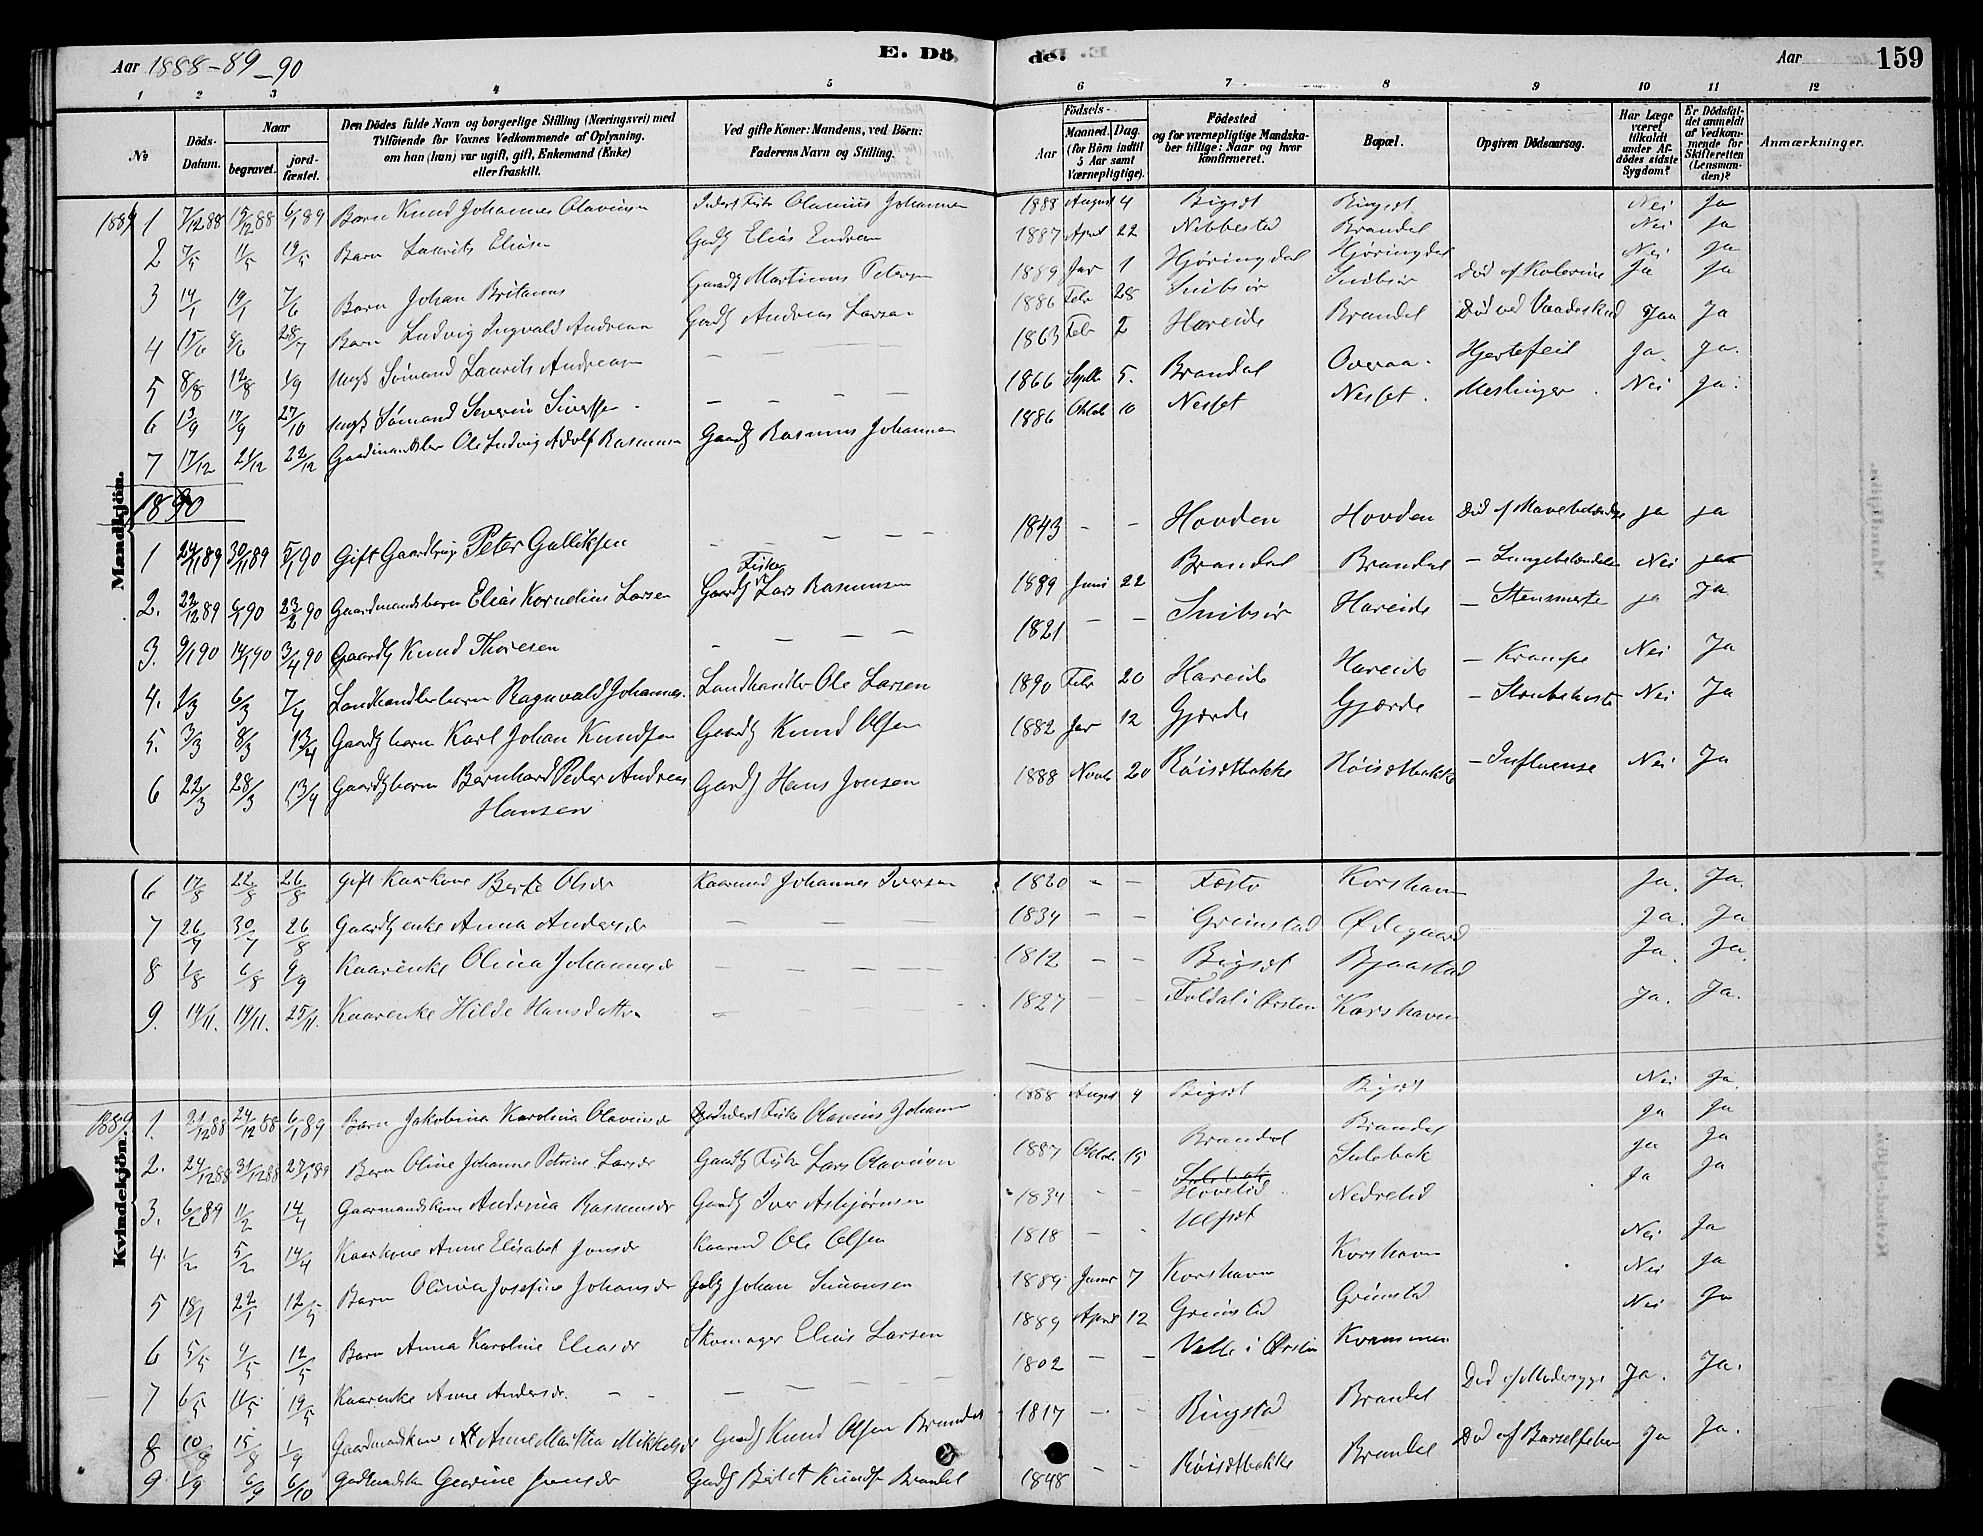 Aar 1888-89-90
E. Dö
de.
Aar
159
1 2 3 4 5 6 7 8 9 10 11 12
No
Döds-Datum.
Naar
begravet.
jordfæstet.
Den Dödes fulde Navn og borgerlige Stilling (Næringsvei) med
Tilföiende for Voxnes Vedkommende af Oplysning.
om han (hun) var ugift, gift, Enkemand (Enke)
eller fraskilt.
Ved gifte Koner: Mandens, ved Börn:
Faderens Navn og Stilling.
Födsels-
Aar
Maaned. Dag.
(for Börn indtil
5 Aar samt
Værnepligtige).
Födested
og for værnepligtige Mandska-
ber tillige: Naar og hvor
konfirmeret.
Bopæl.
Opgiven Dödsaarsag.
Har Læge
været
tilkaldt
under Af-
dödes sidste
Sygdom?
Er Dödsfal-
det anmeldt
af Vedkom-
mende for
Skifteretten
(Lensman-
den)?
Anmærkninger.
Mandkjön.
1889 1 7/12 88 15/12 88 6/1 89 Barn Knud Johannes Olavius Inderst Fisker Olavius Johannes 1888 August 4 Bigset Bigset Nei Ja
2 7/5 11/5 19/5 Barn Laurits Eliasen Gdbr Elias Endresen 1887 April 22 Nibbestad Brandal Nei Ja
3 14/1 19/1 7/6 Barn Johan Britanus Gaardbr Martinus Petersen 1889 Jar 1 Hjøringdal Hjøringdal Nei Ja
4 15/6 8/6 28/7 Barn Ludvig Ingvald Andreasen Gaardbr Andreas Larsen 1886 Febr 28 Snibsør Snibsør Død af Kolerine Ja Ja
5 8/8 12/8 1/9 Ungk Sømand Laurits Andreasen — — — — 1863 Febr 2 Hareide Brandal Død ved Vaadeskud Jaa Ja
6 13/9 17/9 27/10 Ungk Sømand Severin Sivertsen — — — — 1866 Septb 5. Brandal Overaa. Hjertefeil Ja. Ja.
7 17/12 21/12 22/12 Gaardmandsbn Ole Ludvig Adolf Rasmussen Gaardbr Rasmus Johannesen 1886 Oktob 10 Nesset Nesset. Meslinger. Nei Ja.
1890
1 24/11 89 30/11 89 5/1 90 Gift Gaardbrug Peter Gulliksen — — — — 1843 - - Hovden Hovden Død af Mavebetændelse Ja Ja
2. 22/12 89 6/1 90 23/2 90 Gaardmandsbarn Elias Kornelius Larsen Gaardbr Fisker Lars Rasmussen 1889 Juni 22 Brandal Brandal — Lungebetændelse Nei Ja
3. 9/1 90 14/1 90 3/4 90 Gaardbr Knud Thoresen — — — — 1821 - - Snibsør Hareide — Stensmerte Ja Ja
4. 1/3 6/3 7/4 Landhandlerbarn Ragnvald Johannes. Landhandler Ole Larsen 1890 Febr 20 Hareide Hareide — Krampe Nei Ja
5. 3/3 8/3 13/4 Gaardbr barn Karl Johan Knudsen Gaardbr Knud Olsen 1882 Jar 12 Gjerde Gjerde — Strubehoste Nei Ja
6 22/3 28/3 13/4 Gaardbrbarn Bernhard Peder Andreas Gaardbr Hans Jonsen 1888 Novb 20 Røisetbakke Røisetbakke — Influense Nei Ja
Hansen
Kvindekjön.
6 17/8 22/8 26/8 Gift Kaarkone Berte Olsdr Kaarmand Johannes Iversen 1820 - - Festø Korshavn Ja. Ja.
7 26/7 30/7 26/8 Gaardbr enke Anna Andersdr — — — 1834 - - Grimstad Ødegaard Ja. Ja
8 1/8 6/8 9/9 Kaarenke Olina Johannesdr — — — — 1812 - - Bigset Bjaastad Ja. Ja.
9. 14/11. 19/11. 25/11. Kaarenke Hilde Hansdatter — — — — 1827 - - Foldal i Ørsten Korshavn Ja. Ja.
1889 1. 21/12 88 24/12 88 6/1 89 Barn Jakobina Karolina Olaviusdr Inderst Fisker Olavius Johannes 1888 August 4 Bigset Bigset Nei Ja.
2. 24/12 88 31/12 88 27/1 89 Barn Oline Johanne Petrine Larsdr Gaardbr Fisker Lars Olavusen 1887 Oktob. 15 Brandal Brandal Ja Ja
3. 6/2 89 11/2 14/4 Gaarmandskone Andrina Rasmusdr Gaardbr Iver Asbjørnsen 1834 - - Hovelid Sulebak Ja Ja
4. 1/2 5/2 14/4 Kaarkone Anne Elisabet Jonsdr Kaarmd Ole Olsen 1818 - - Ulfset Nedrelid Ja Ja
5 18/1 22/1 12/5 Barn Olivia Josefine Johansdr Gdbr Johan Simonsen 1889 Januar 7 Korshavn Korshavn Nei Ja
6 5/5 9/5 12/5 Barn Anna Karoline Eliasdr Skomager Elias Larsen 1889 April 12 Grimstad Grimstad Nei Ja
7 6/5 11/5 19/5 Kaarenke Anne Andersdr. — — — — 1802 - - Velle i Ørsten Kvammen Nei Ja
8 10/8 15/8 1/9 Gaardmandskone Anne Martha Mikkelsdr Gaardbr Knud Olsen Brandal 1817 - - Ringstad Brandal Død af Modersyge Ja. Ja.
9. 1/9 6/9 6/10 Gaardmandskone Georine Jonsdr Gaardbr Knudsen Brandal 1848 - - Røisetbakke Brandal Død af Barselfeber Ja Ja.